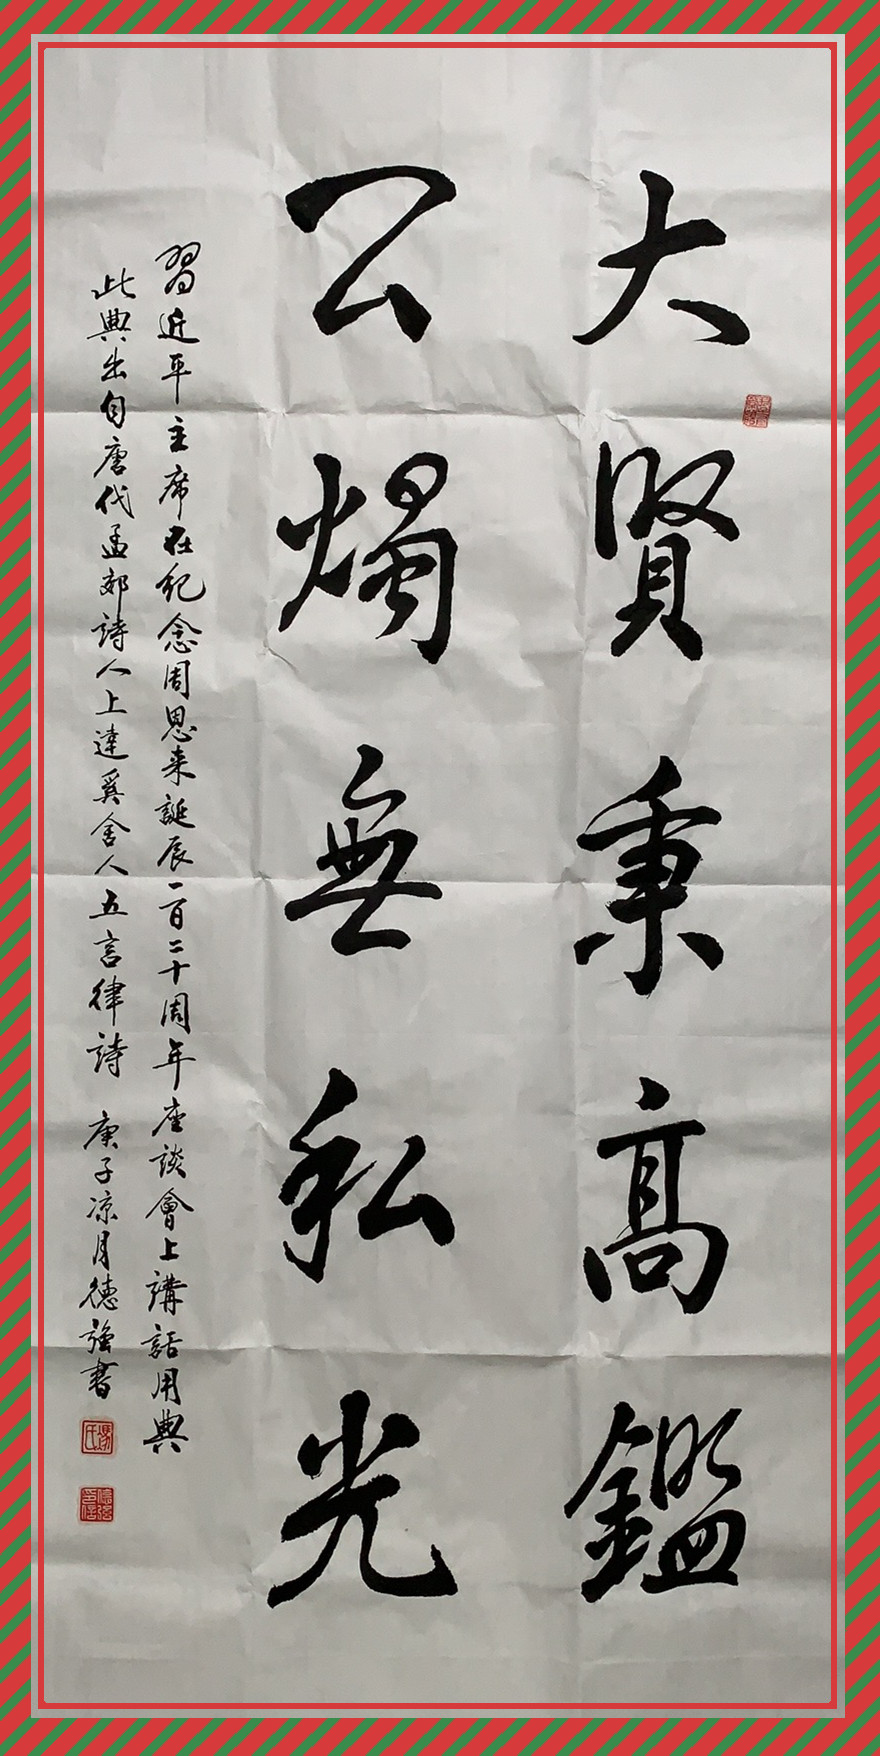 大賢秉高鑑
公燭無私光
習近平主席在紀念周恩来誕辰一百二十周年座談會上講話用典
此典出自唐代孟郊詩人上達奚舍人五言律詩 庚子凉月德強書